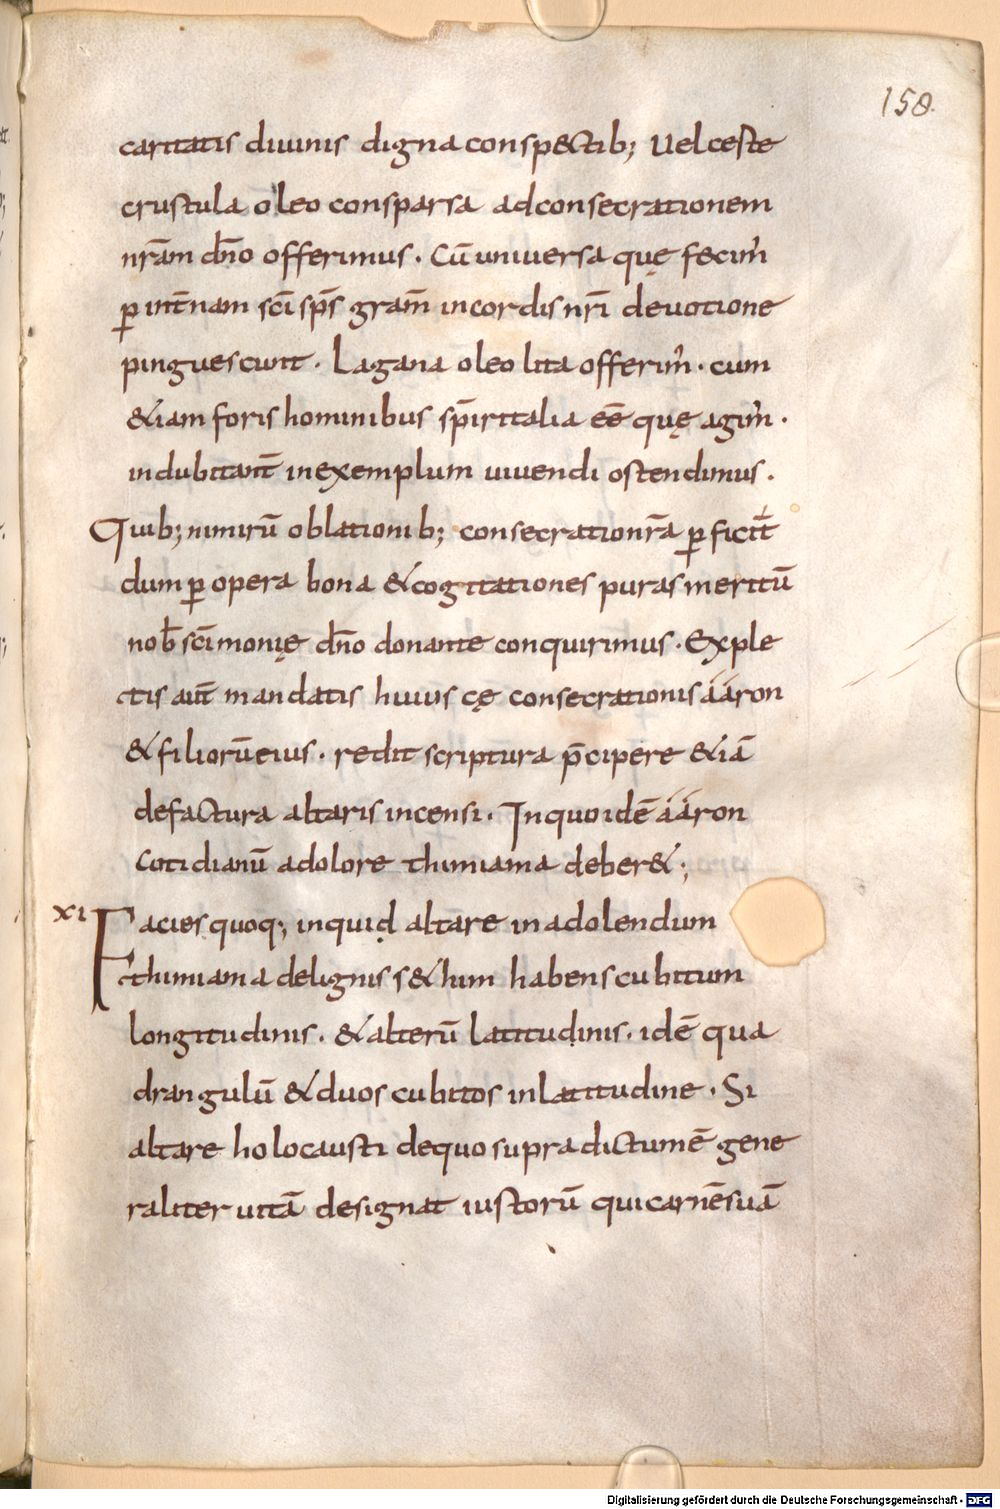 158.
caritatis diuinis digna conspectib; Vel ceste
crustula oleo consparsa ad consecrationem
nr̄am dn̄o offerimus. Cū uniuersa quę fecim᾿
p̲ int̄nam sc̄i sp̄s gram̄ in cordis nr̄i deuotione
pinguescunt. Lagana oleo lita offerim᾿. cum
&iam foris hominibus sp̄iritalia eē quę agim᾿.
indubitant̄ in exemplum uiuendi ostendimus.
Quib; nimirū oblationib; consecratio nr̄a p̲ficit᾿
dum p̲ opera bona & cogitationes puras meritū
nob̄ sc̄imonię dn̄o donante conquirimus. Exple
ctis aut̄ mandatis huiuscę consecrationis ááron
& filiorū eius. redit scriptura p̄cipere &iā
de factura altaris incensi. In quo idē ááron
cotidianū adolore thimiama deber&;
XI Facies quoq; inquid altare in adolendum
thimiama de lignis s&him habens cubitum
longitudinis. & alterū latitudinis. idē qua
drangulū & duos cubitos in latitudine. Si
altare holocausti de quo supra dictum ē gene
raliter uitā designat iustorū qui carnē suā
Digitalisierung gefördert durch die Deutsche Forschungsgemeinschaft - DFG